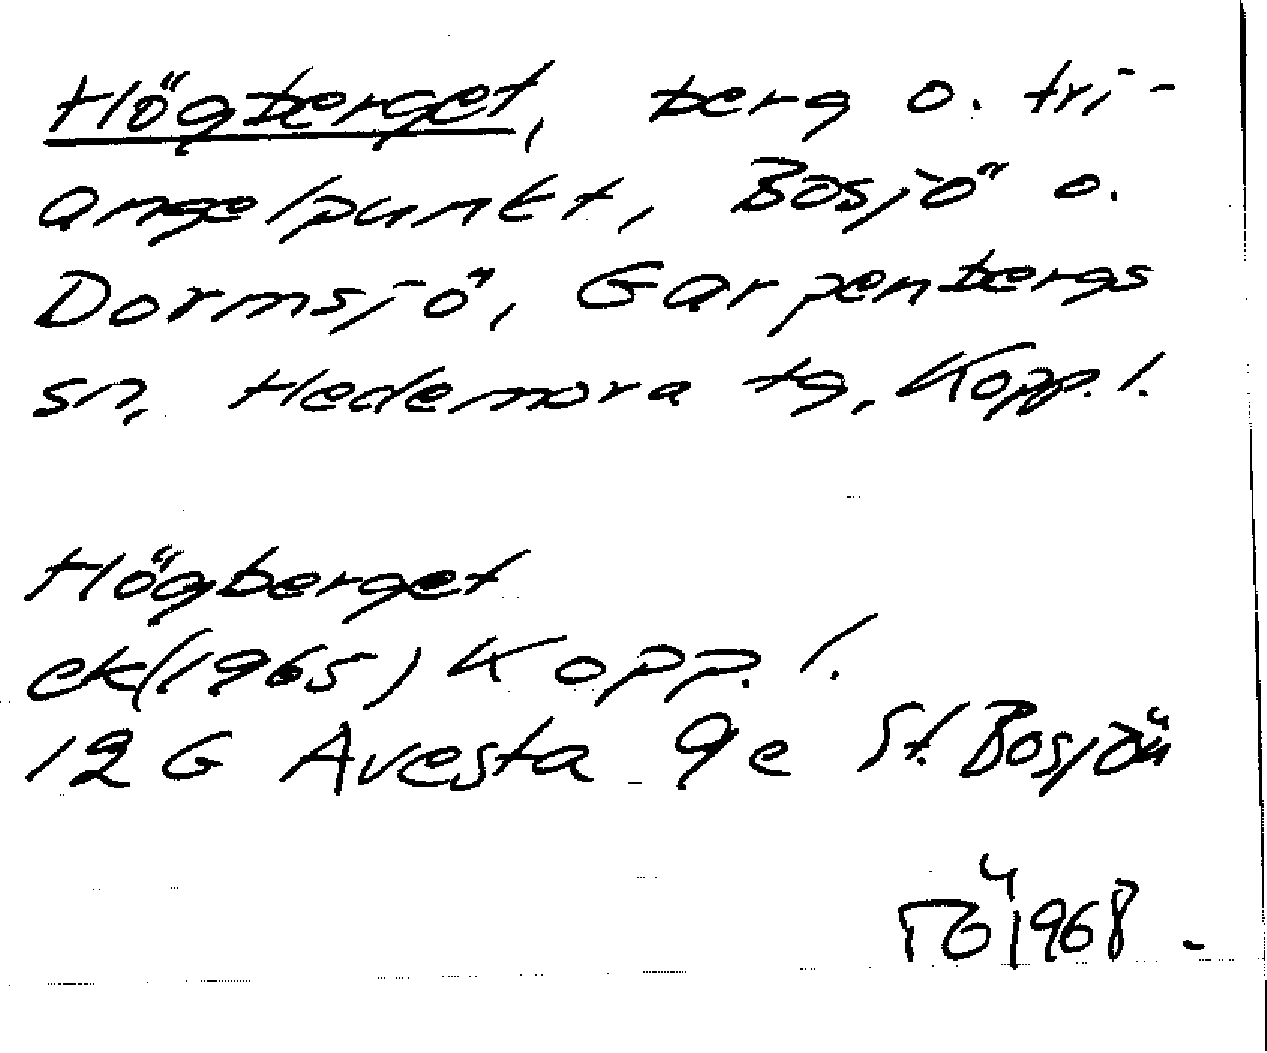 Högberget, berg o. tri-
angelpunkt, Bosjö o.
Dormsjö, Garpenbergs
sn, Hedemora tg, Kopp. l.
Högberget
ek(1965) Kopp. l.
12 G Avesta 9e St. Bosjön
TÖ 1968